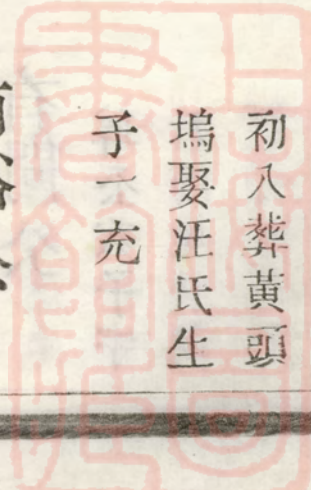 初八葬黃頭
塢娶汪氏生
子一充